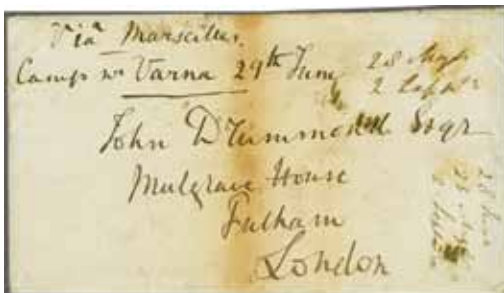 Via Marseilles.
Camp nr Varna 29th June
John Drummond Esqr
Mulgrave House
Fulham
London
28
2